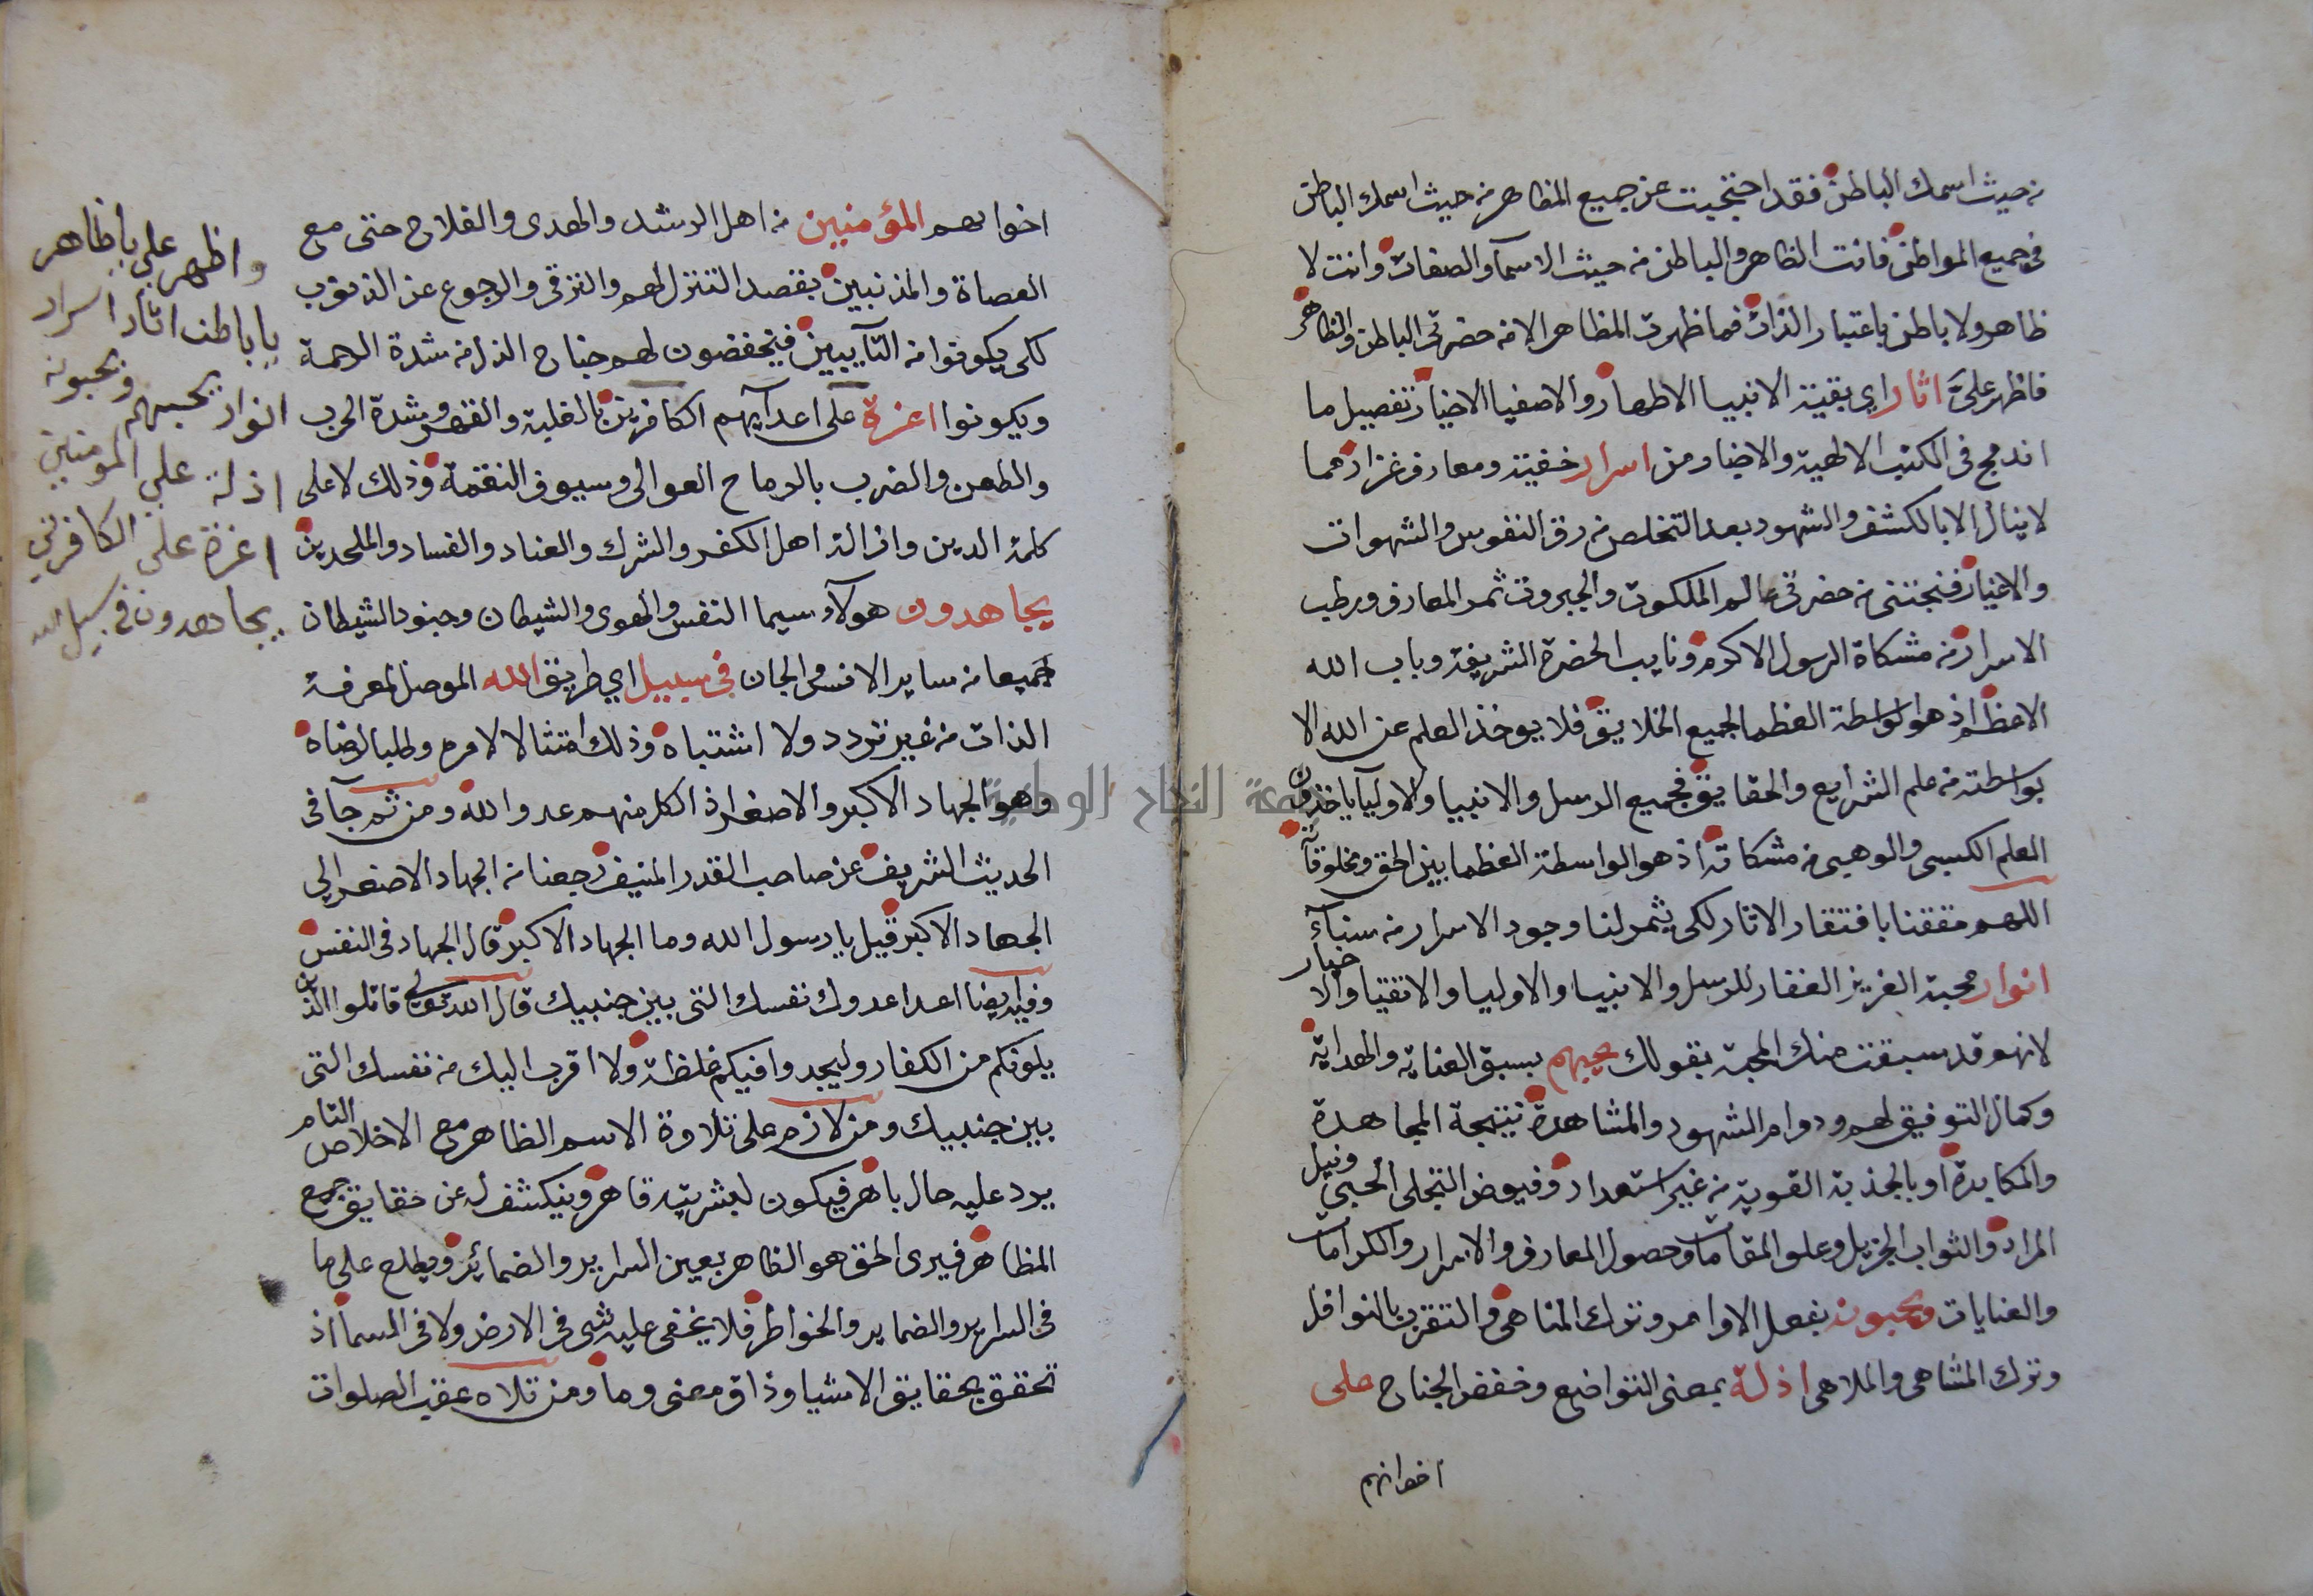 من حيث اسمك الباطن فقد احتجبت عن جميع المظاهر من حيث اسمك الباطن
في جميع المواطن فانت الظاهر والباطن من حيث الاسمآ والصفات وانت لا
ظاهر ولا باطن باعتبار الذات فما ظهرت المظاهر الا من حضرتي الباطن والظاهر
فاظهر عليَّ اثار اي بقية الانبيا الاطهار والاصفيا الاخيار تفصيل ما
اندمج في الكتب الالهية والاخبار من اسرار خفية ومعارف غزار مما
لا ينال الا بالكشف والشهود بعد التخلص من رق النفوس والشهوات
والاغيار فنجتني من حضرتي عالم الملكوت والجبروت ثمر المعارف ورطب
الاسرار من مشكاة الرسول الاكرم ونايب الحضرة الشريفة وباب الله
الاعظم اذ هو الواسطة العظما لجميع الخلايق فلا يوخذ العلم عن الله الا
بواسطته من علم الشرايع والحقايق فجميع الرسل والانبيا والاوليآ ياخذون
العلم الكسبي والوهبي من مشكاته اذ هو الواسطة العظما بين الحق ومخلوقاته
اللهم حققنا بافتقار الاثار لكي يثمر لنا وجود الاسرار من سنآء
انوار محبة العزيز الغفار للرسل والانبيا والاوليا والاتقيا والاخيار
لانهم قد سبقت منك المحبة بقولك يحبهم بسبق العناية والهداية
وكمال التوفيق لهم ودوام الشهود والمشاهدة نتيجة المجاهدة
والمكابدة او بالجذبة القوية من غير استعداد وفيوض التجلي الحبي ونيل
المراد والثواب الجزيل وعلو المقامات وحصول المعارف والاسرار والكرامات
والعنايات ويحبونه بفعل الاوامر وترك المناهي والتقرب بالنوافل
وترك المشاهي والملاهي اذلة بمعنى التواضع وخفض الجناح على
اخوانهم
اخوانهم المؤمنين من اهل الرشد والهدى والفلاح حتى مع
العصاة والمذنبين بقصد التنزل لهم والترقي والرجوع عن الذنوب
لكي يكونوا من التآيبين فيخفضون لهم جناح الذل من شدة الرحمة
ويكونوا اعزة على اعدآيهم الكافرين بالغلبة والقهر وشدة الحرب
والطعن والضرب بالرماح العوالي وسيوف النقمة وذلك لاعلى
كلمة الدين وازالة اهل الكفر والشرك والعناد والفساد والملحدين
يجاهدون هولآء سيما النفس والهوى والشيطان وجنود الشيطان
جميعا من ساير الانس والجان في سبيل اي طريق الله الموصل لمعرفة
الذات من غير تردد ولا اشتباه وذلك امتثالا لامره وطلبا لرضاه
وهو الجهاد الاكبر والاصغر اذ الكل منهم عدو الله ومن ثم جآ في
الحديث الشريف عن صاحب القدر المنيف رجعنا من الجهاد الاصغر الي
الجهاد الاكبر قيل يا رسول الله وما الجهاد الاكبر قال الجهاد في النفس
وفيه ايضا اعدا عدوك نفسك التي بين جنبيك قال الله تعالى قاتلوا الذين
يلونكم من الكفار وليجدوا فيكم غلظة ولا اقرب اليك من نفسك التي
بين جنبيك ومن لازم على تلاوة الاسم الظاهر مع الاخلاص التام
يرد عليه حال باهر فيكون لبشريته قاهر وينكشف له عن حقايق جميع
المظاهر فيرى الحق هو الظاهر بعين السراير والضمائر ويطلع على ما
في السراير والضماير والخواطر فلا يخفى عليه شي في الارض ولا في السما اذ
تحقق بحقايق الاشيا وذاق معنى وما ومن تلاه عقب الصلوات
واظهر علي يا ظاهر
يا باطن اثار اسرار
انوار يحبهم ويحبونه
اذلة علي المومنين
اعزة على الكافرين
يجاهدون في سبيل الله
جامعة النجاح الوطنية